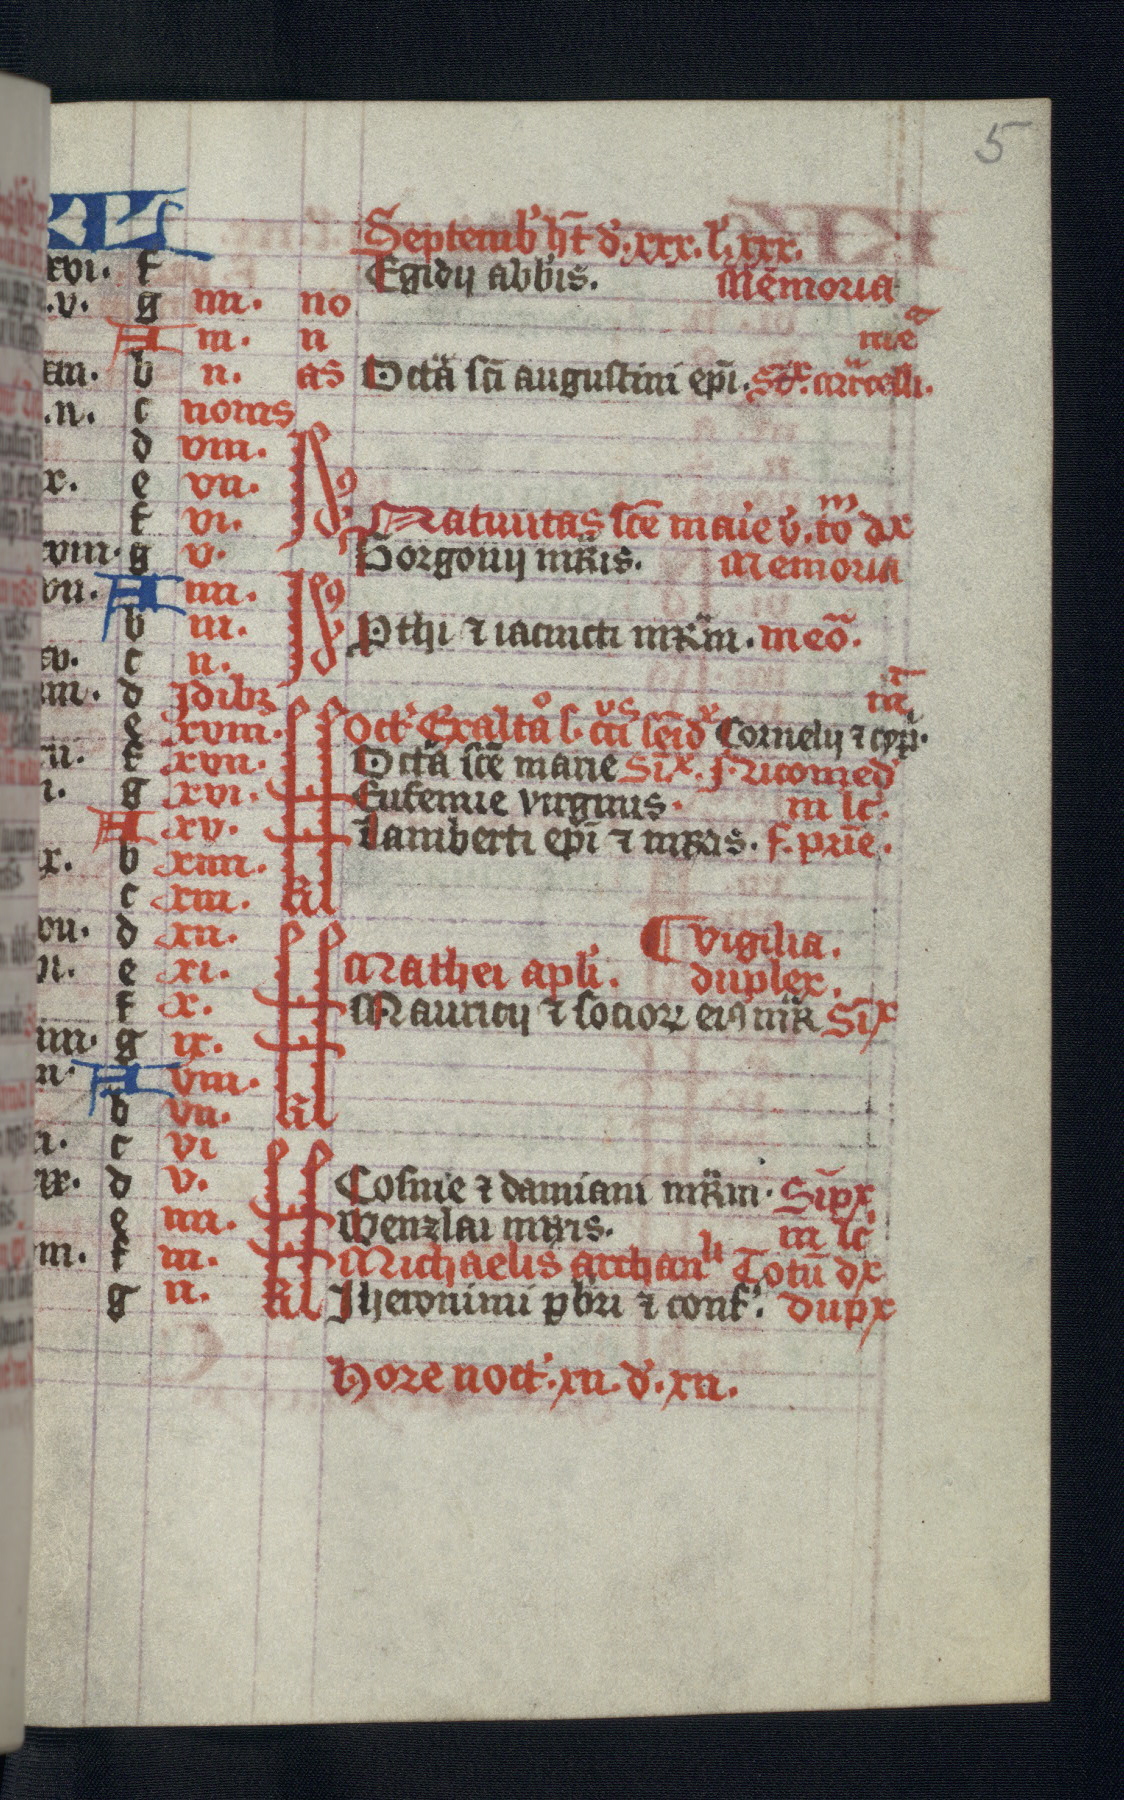 5
KL Septemb' h't d'. xxx. l', xxx.
xvi. f Egidij abb'is. Memoria
.v. g iiii. no
A iii. n me͞a
xiii. b ii. as Octa͞ s͞ci augustini ep͞i.
.ii. c nonis
d viii. Id9
x. e vii.
f vi. Natiuitas s͞ce marie v. to͞m dx
xviii. g v. Gorgonij m͞ris. Memoria
vii. A iiii. Id9
b iii. P͞thi ⁊ iacincti m͞rm. meo͞.
xv. c ii.
iiii. d Idibꝫ
e xviii. Oct' Exalta͞o s. Cornelij ⁊ cyp͞.
xii. f xvii. Octa͞ s͞ce marie Si͞x. f. Nicomed'
i. g xvi. Eufemie virginis. iii lc͞.
A xv. Lamberti ep͞i ⁊ m͞ris.
ix. b xiiii.
c xiii. Kl
xvii. d xii. Vigilia.
vi. e xi. Mathei ap͞li. duplex.
f x. Mauricij ⁊ socioꝝ ei9 m͞r Si͞x
xiiii. g ix.
iii. A viii.
b vii. Kl
xi. c vi
xix. d v. Cosme ⁊ damiani m͞rm. Si͞px
e iiii. Wenzlai m͞ris. iii lc
viii. f iii. Michaelis archan͞li Totu͞ dx
g ii. Kl Iheronimi p͞bri ⁊ conf'. dupx
Hore noct'. xii. d'. xii.